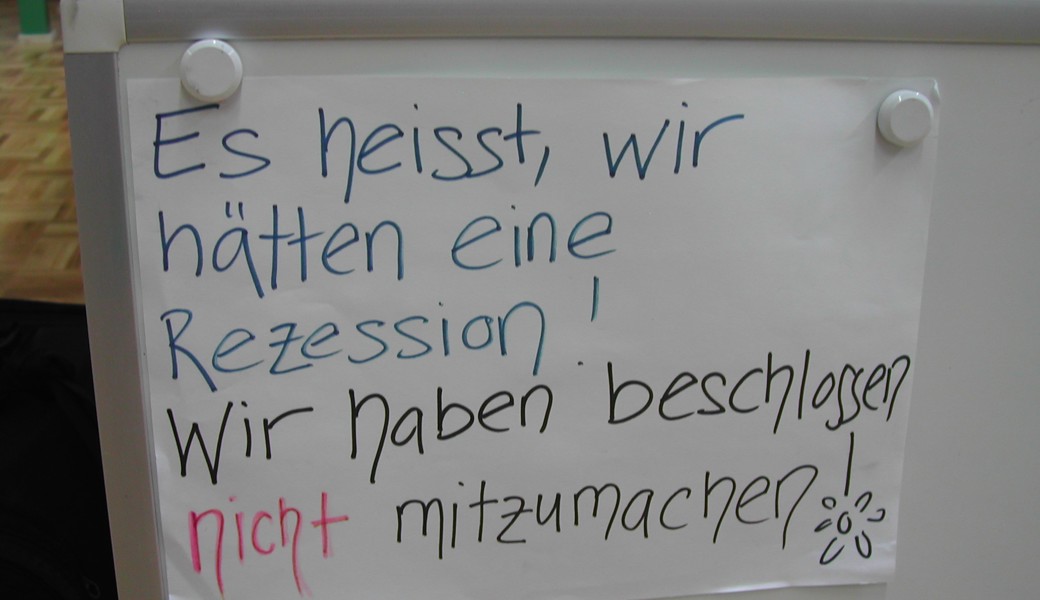 Es heisst, wir
hätten eine
Rezession!
Wir haben beschlossen
nicht mitzumachen!